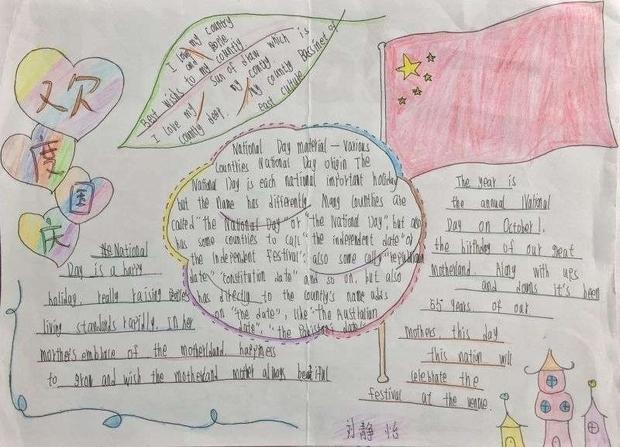 欢
度
国
庆
I love my country
and people
Best wishes to my country
I love my sun of draw which is
country deep. my contry
my country Bassinet of
east culture
National Day material - Various
Countries National Day origin The
National Day is each national important holiday
but the name has differently. Many countries are
called "the National Day" or "the National Day", but also
has some countries to call "the independent date" or
"the Independent Festival"; also some call "republican
date" "constitution date" and so on, but also
has directly to the country's name adds
on "the date", like "the Australian
date", "the Pakistani date"
The year is
the annual National
Day on October 1.
the birthday of our great
motherland. Along with ups
and downs it's been
55 years of our
mothers this day
this nation will
celebrate the
festival at the venue.
National
Day is a happy
holiday, really raising
living standards rapidly. In her
mother's embrace of the motherland happiness
to grow and wish the motherland mother always beautiful
刘静怡